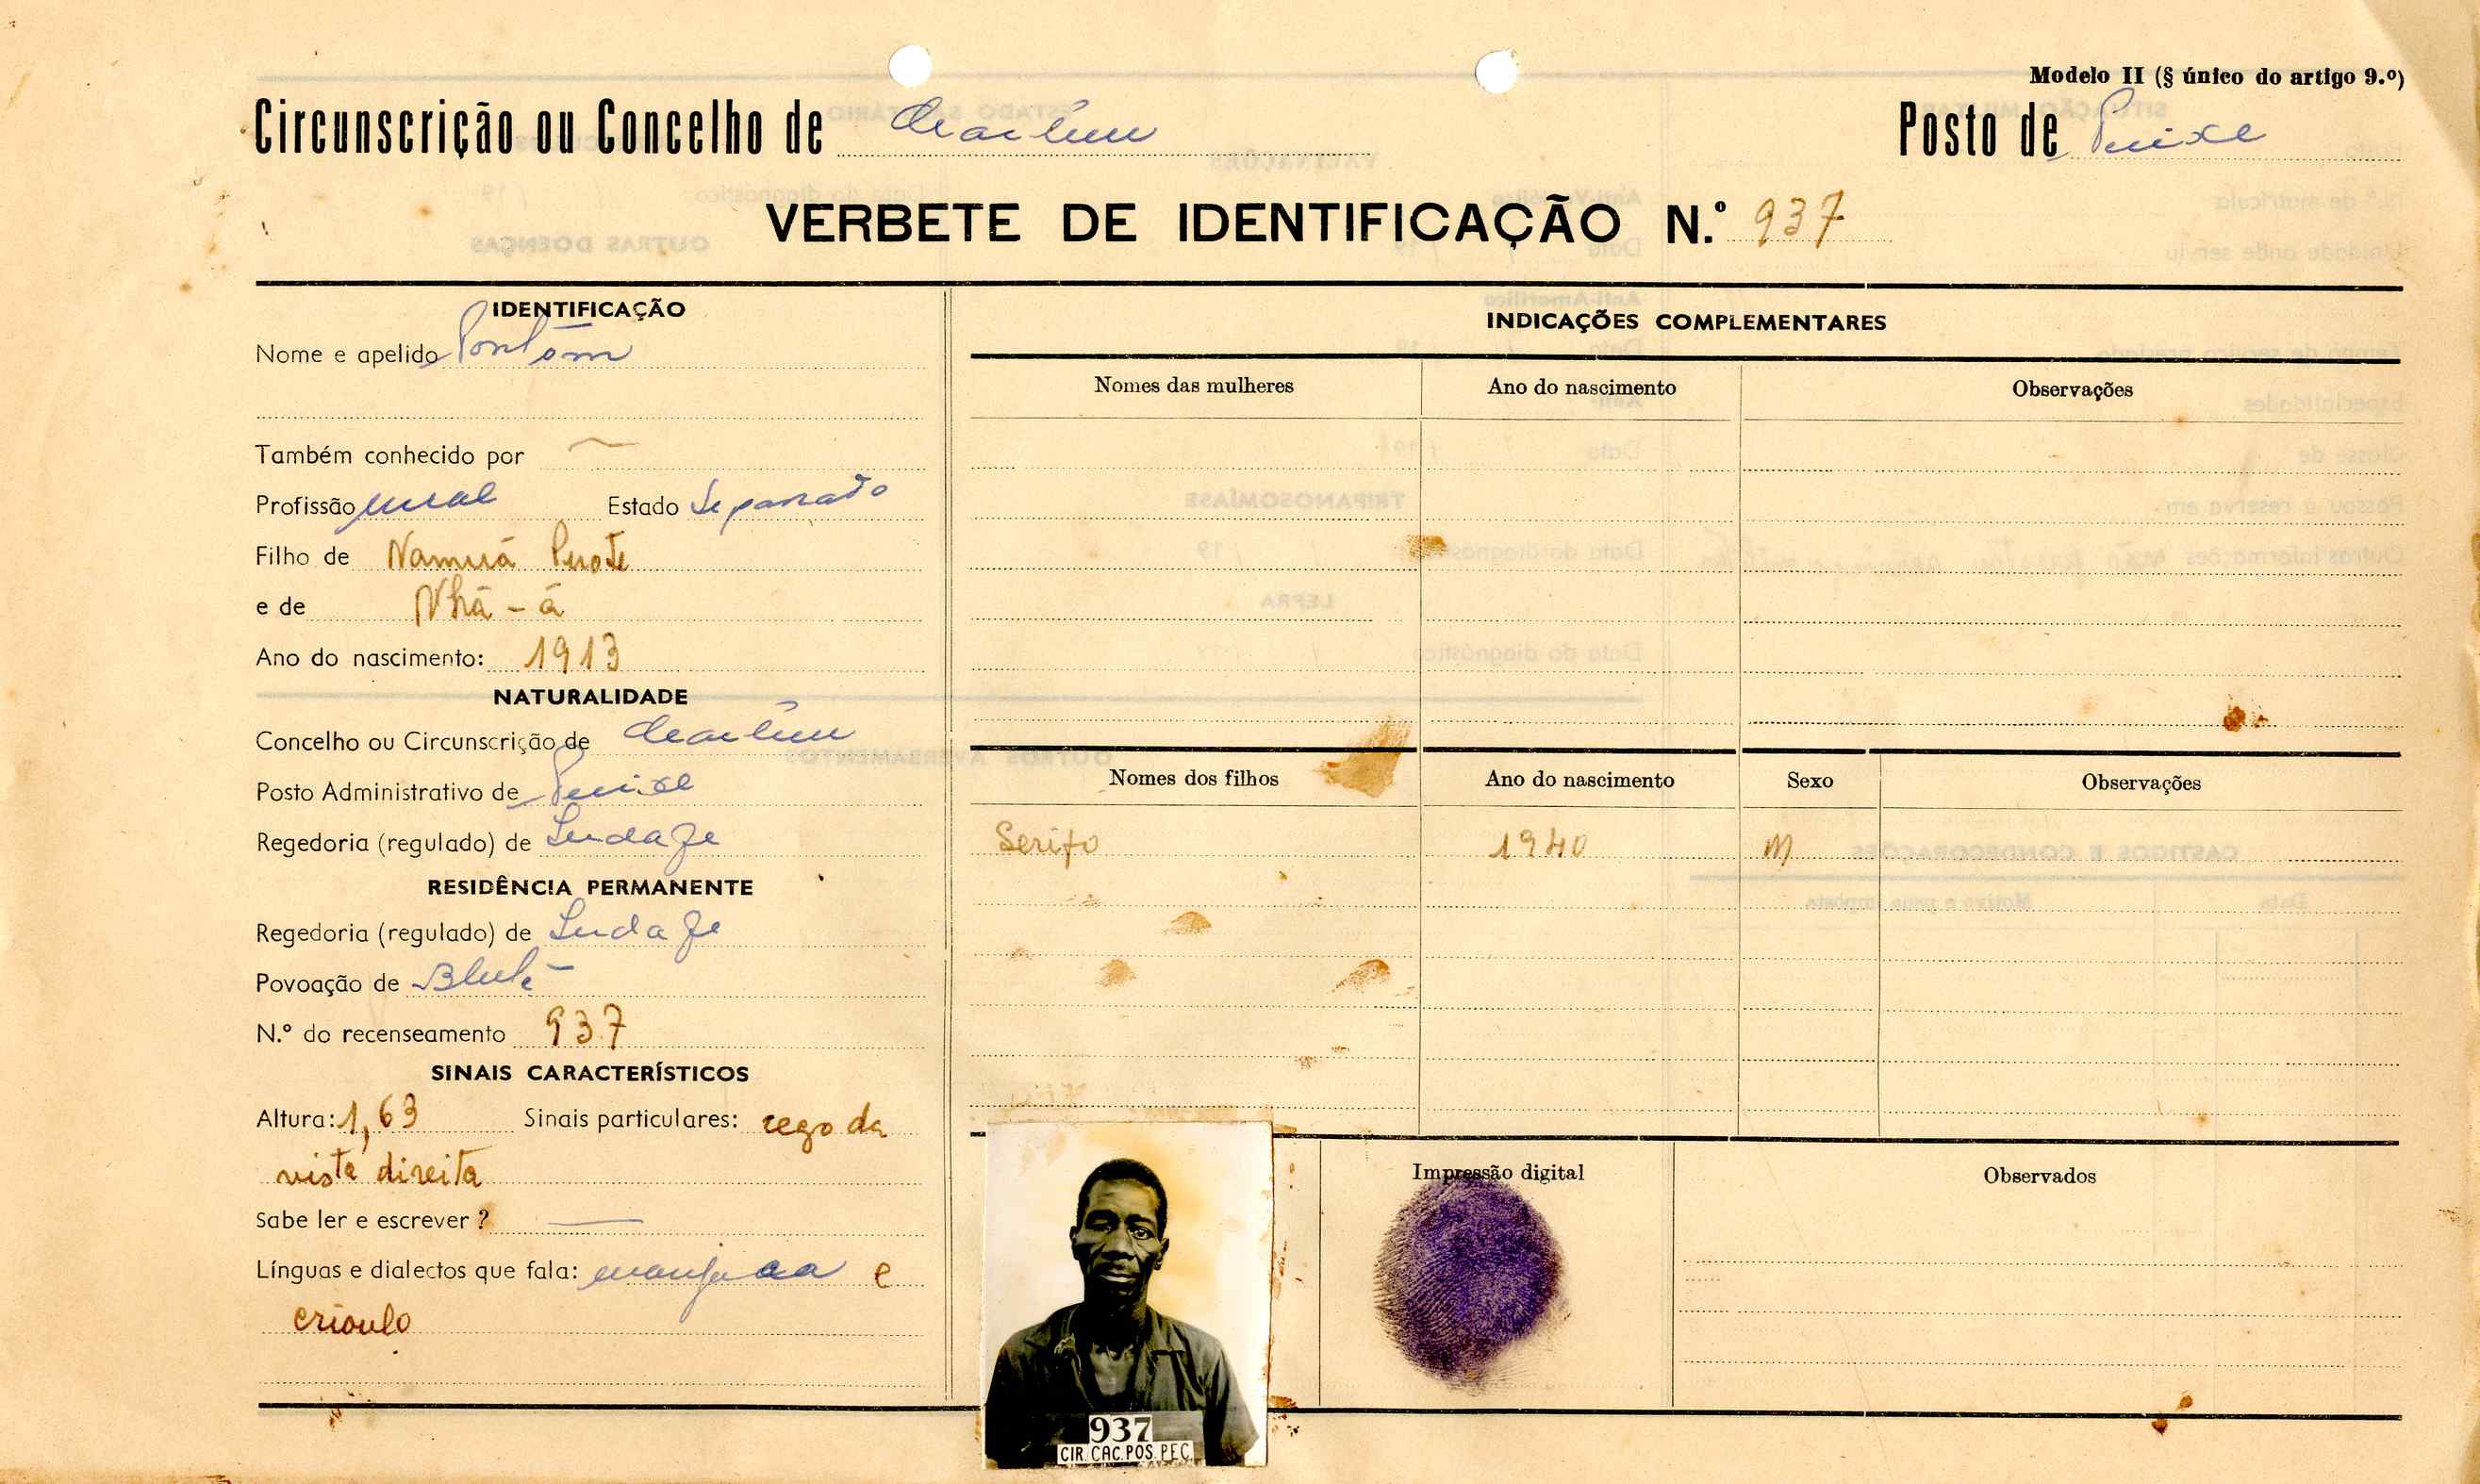 Modelo II (§ único do artigo 9.º)
Circunscrição ou Concelho de Cacheu
Posto de Peixe
VERBETE DE IDENTIFICAÇÃO N.º 937
IDENTIFICAÇÃO
Nome e apelido Pontom
Também conhecido por —
Profissão rural Estado Separado
Filho de Namuá
e de Nhã - á
Ano do nascimento: 1913
NATURALIDADE
Concelho ou Circunscrição de
Posto Administrativo de
Regedoria (regulado) de
RESIDÊNCIA PERMANENTE
Regedoria (regulado) de
Povoação de
N.º do recenseamento 937
SINAIS CARACTERÍSTICOS
Altura: 1,63 Sinais particulares: cego da
vista direita
Sabe ler e escrever ? —
Línguas e dialectos que fala: manjaca e
crioulo
INDICAÇÕES COMPLEMENTARES
Nomes das mulheres Ano do nascimento Observações
Nomes dos filhos Ano do nascimento Sexo Observações
Serifo 1940 M
Impressão digital Observados
937
CIR.CAC.POS.PEC.